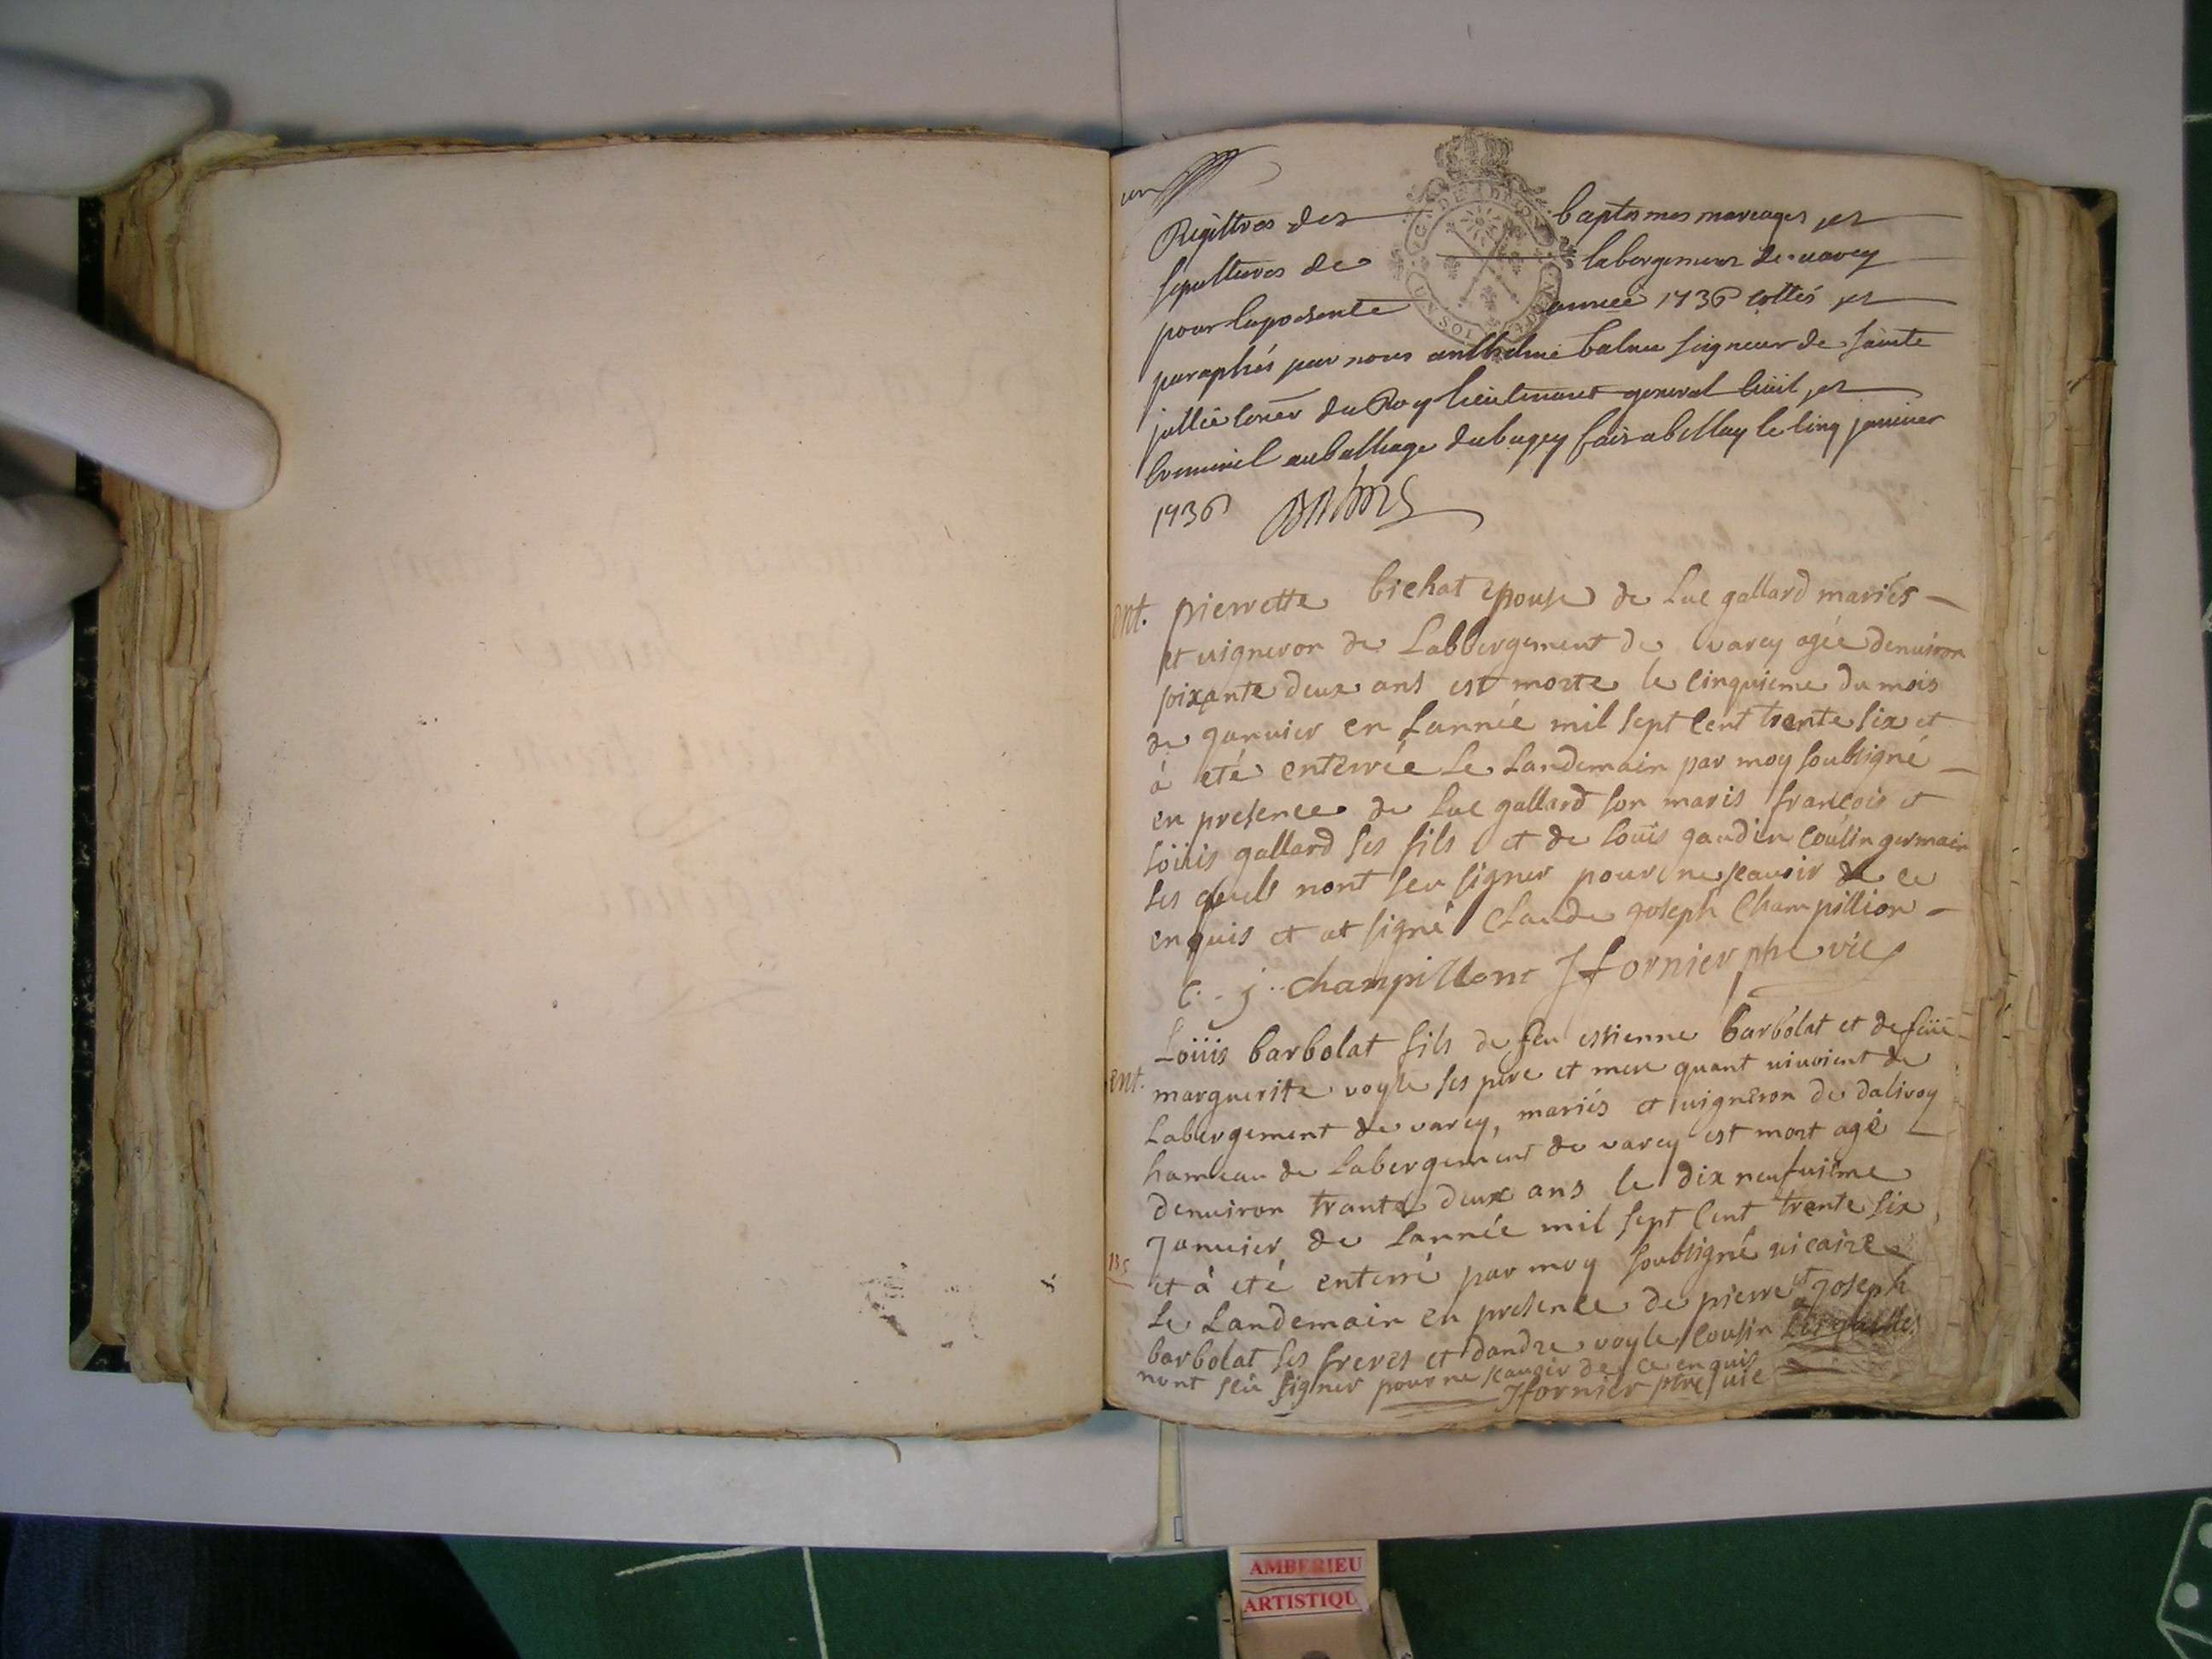 Registres des baptesmes mariages et
sepultures de labergement de varey
pour la presente année 1736 cottés et
paraphés par nous anthelme balme seigneur de sainte
jullie coner du Roy lieutenant general civil et
criminel au balliage du bugey fait a bellay le cinq janvier
1736
ent. pierrette bichat epouse de Luc gallard mariés
et vigneron de Labbergement de varey agée denviron
soixante deux ans est morte le cinquieme du mois
de janvier en Lannée mil sept cent trente six et
à eté enterrée Le Landemain par moy soubsigné
en presence de Luc gallard son maris francois et
Loüis gallard ses fils et de Loüis gaudin cousin germain
les quels nont seu signer pour ne scavoir de ce
enquis et at signé Claude joseph Champillion
C. j. champillont Jfornier ptre vic
ent. Loüis barbolat fils de feu estienne barbolat et de feüe
marguerite voyle ses pere et mere quant vivoient de
Labergement de varey, mariés et vigneron de dalivoy
hameau de Labergement de varey est mort agé
denviron trante deux ans le dix neufvième
Janvier de Lannée mil sept cent trente six
et à eté enterré par moy soubsigné vicaire
Le Landemain en presence de pierre et joseph
barbolat ses freres et dandre voyle cousin
nont seu signer pour ne scavoir de ce enquis
Jfornier ptre vic
135
DE
UN SOL
AMBERIEU
ARTISTIQU